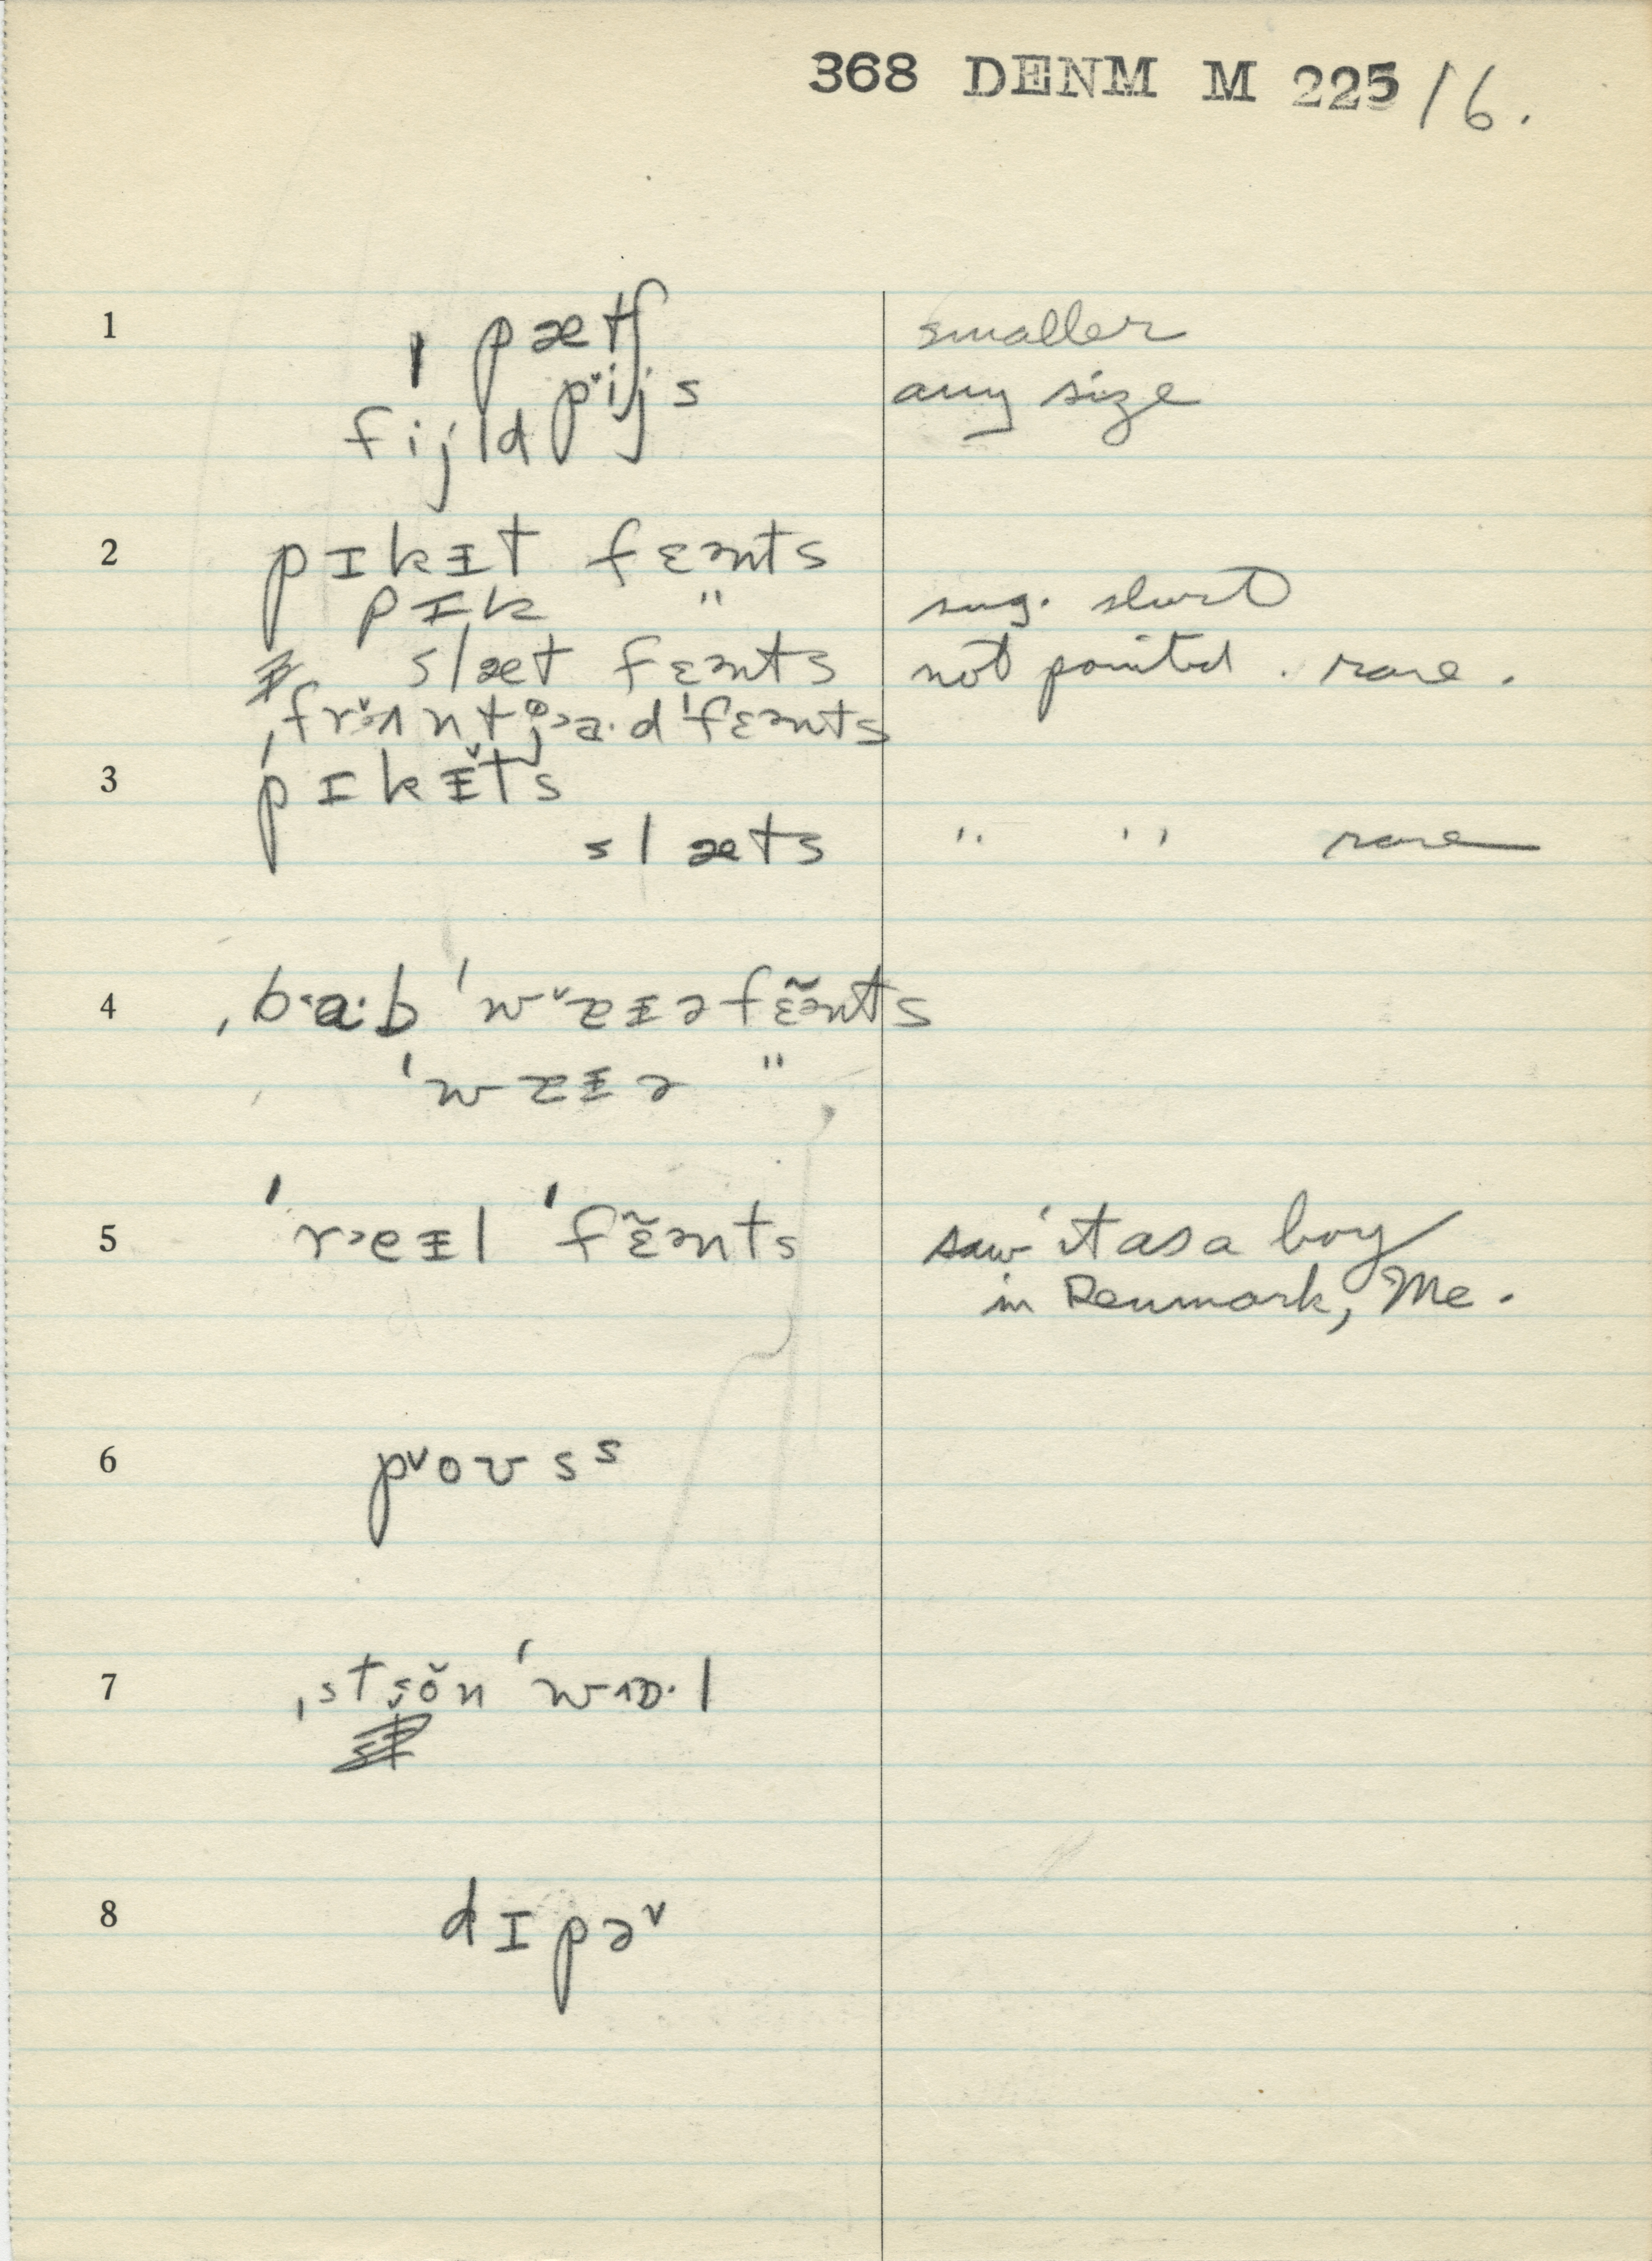 368 DENM M 225/16.
1 ˈ pætʃ smaller
pˇijs any size
fijld
2 pɪkᵻt fɛənts
pɪk " sug. short
slæt fɛənts not pointed. rare.
ˌfrˇɜʌntjɐ·dˈfɛənts
3 pɪkᵻ̌ts
slæts " " rare
4 ˌb·a·bˈwˇɐᵻəfɛ̃ənts
ˈwɐᵻə "
5 ˈr˃eᵻl ˈfɛ̃ənts saw it as a boy
in Denmark, Me.
6 pˇoʊsˢ
7 ˌstŏnˈwɒ·l
8 dɪpəˇ